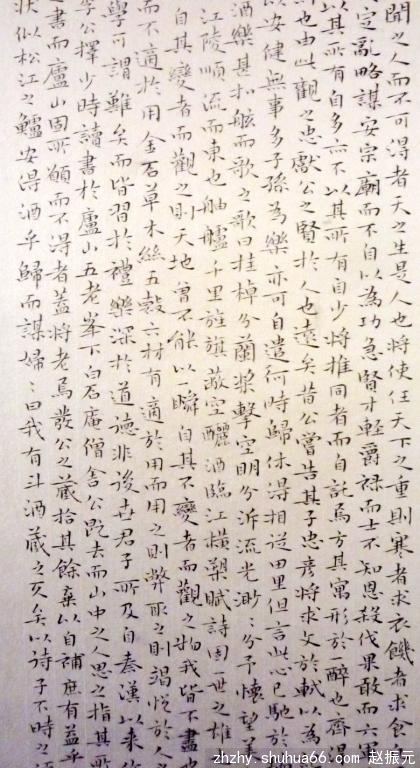 聞之人而不可得者天之生是人也將使任天下之重則寒者求衣饑者求食
定亂略謀安宗廟而不自以為功急賢才輕爵祿而士不知恩殺伐果敢而六軍
以其所有自多亦不以其所有自少將推同者而自託焉方其寓形於一醉也齊得
也由此觀之忠獻公之賢於人也遠矣昔公嘗告其子忠彥將求文於軾以為
以安健無事多子孫為樂亦可自遣何時歸休得相從田里但言此心已馳於
酒樂甚扣舷而歌之歌曰桂棹兮蘭槳擊空明兮泝流光渺〻兮予懷望美
江陵順流而東也舳艫千里旌旗蔽空釃酒臨江橫槊賦詩固一世之雄
自其變者而觀之則天地曾不能以一瞬自其不變者而觀之物我皆不盡也
而不適於用金石草木絲五穀六材有適於用而用之則弊取之則竭悅於人
學可謂難矣而皆習於禮樂深於道德非後世君子所及自秦漢以來作
李公擇少時讀書於廬山五老峯下白石庵僧舍公既去而山中之人思之指其所
書而廬山固所願而不得者蓋將老焉發公之藏拾其餘棄以自補庶有益乎
狀似松江之鱸安得酒乎歸而謀婦〻曰我有斗酒藏之久矣以待子不時之須
zhzhy.shuhua66.com 赵振元